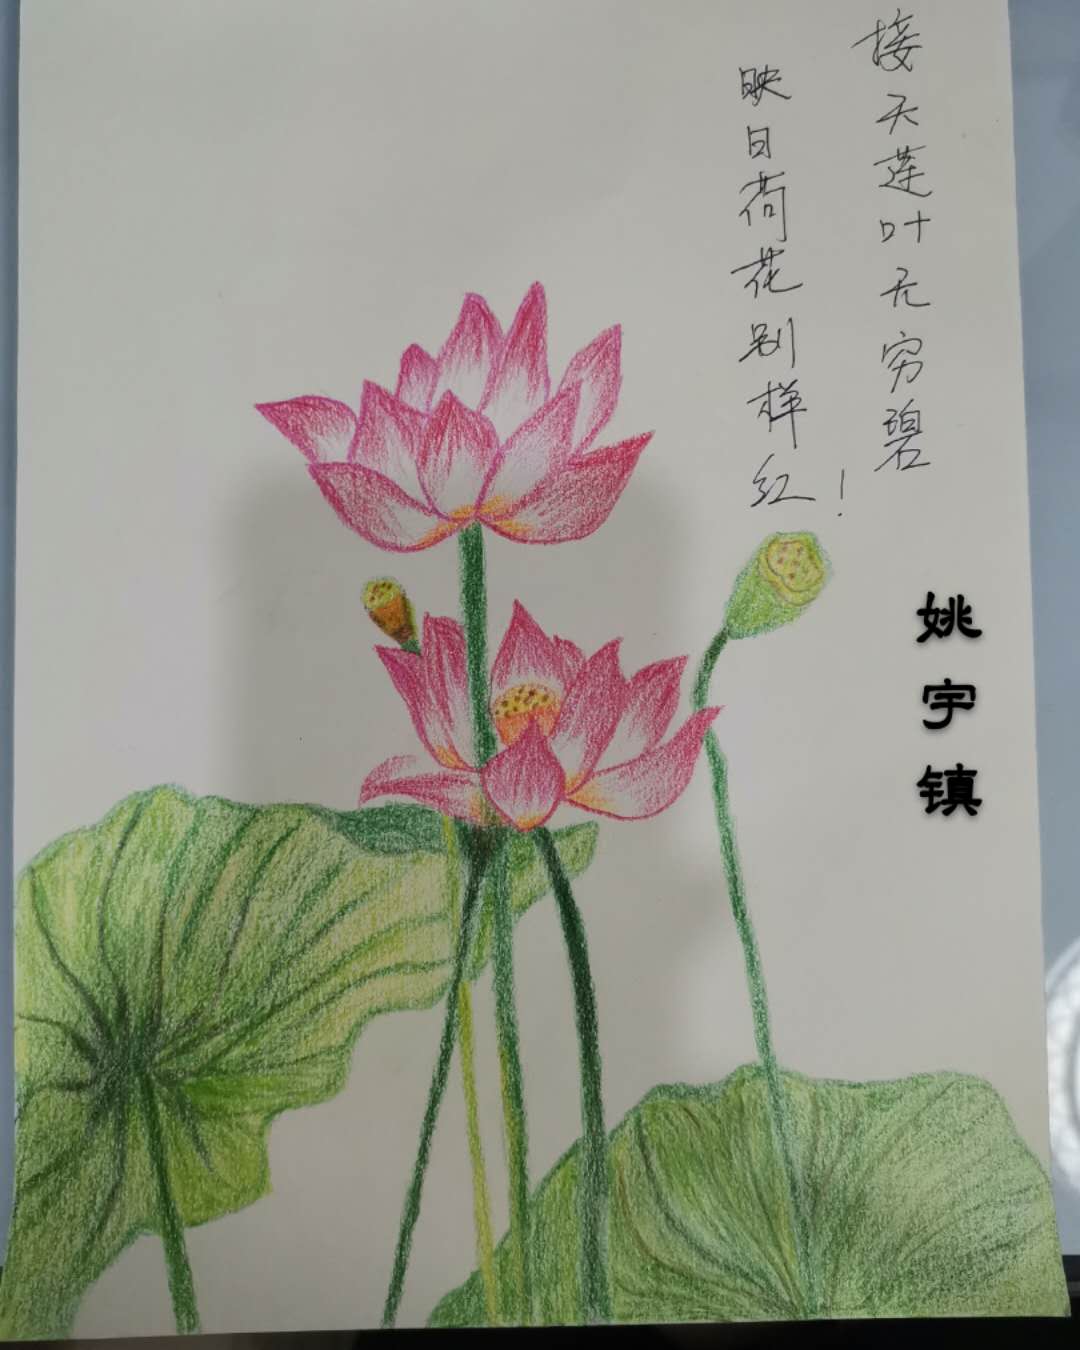 接天莲叶无穷碧
映日荷花别样红!
姚宇镇